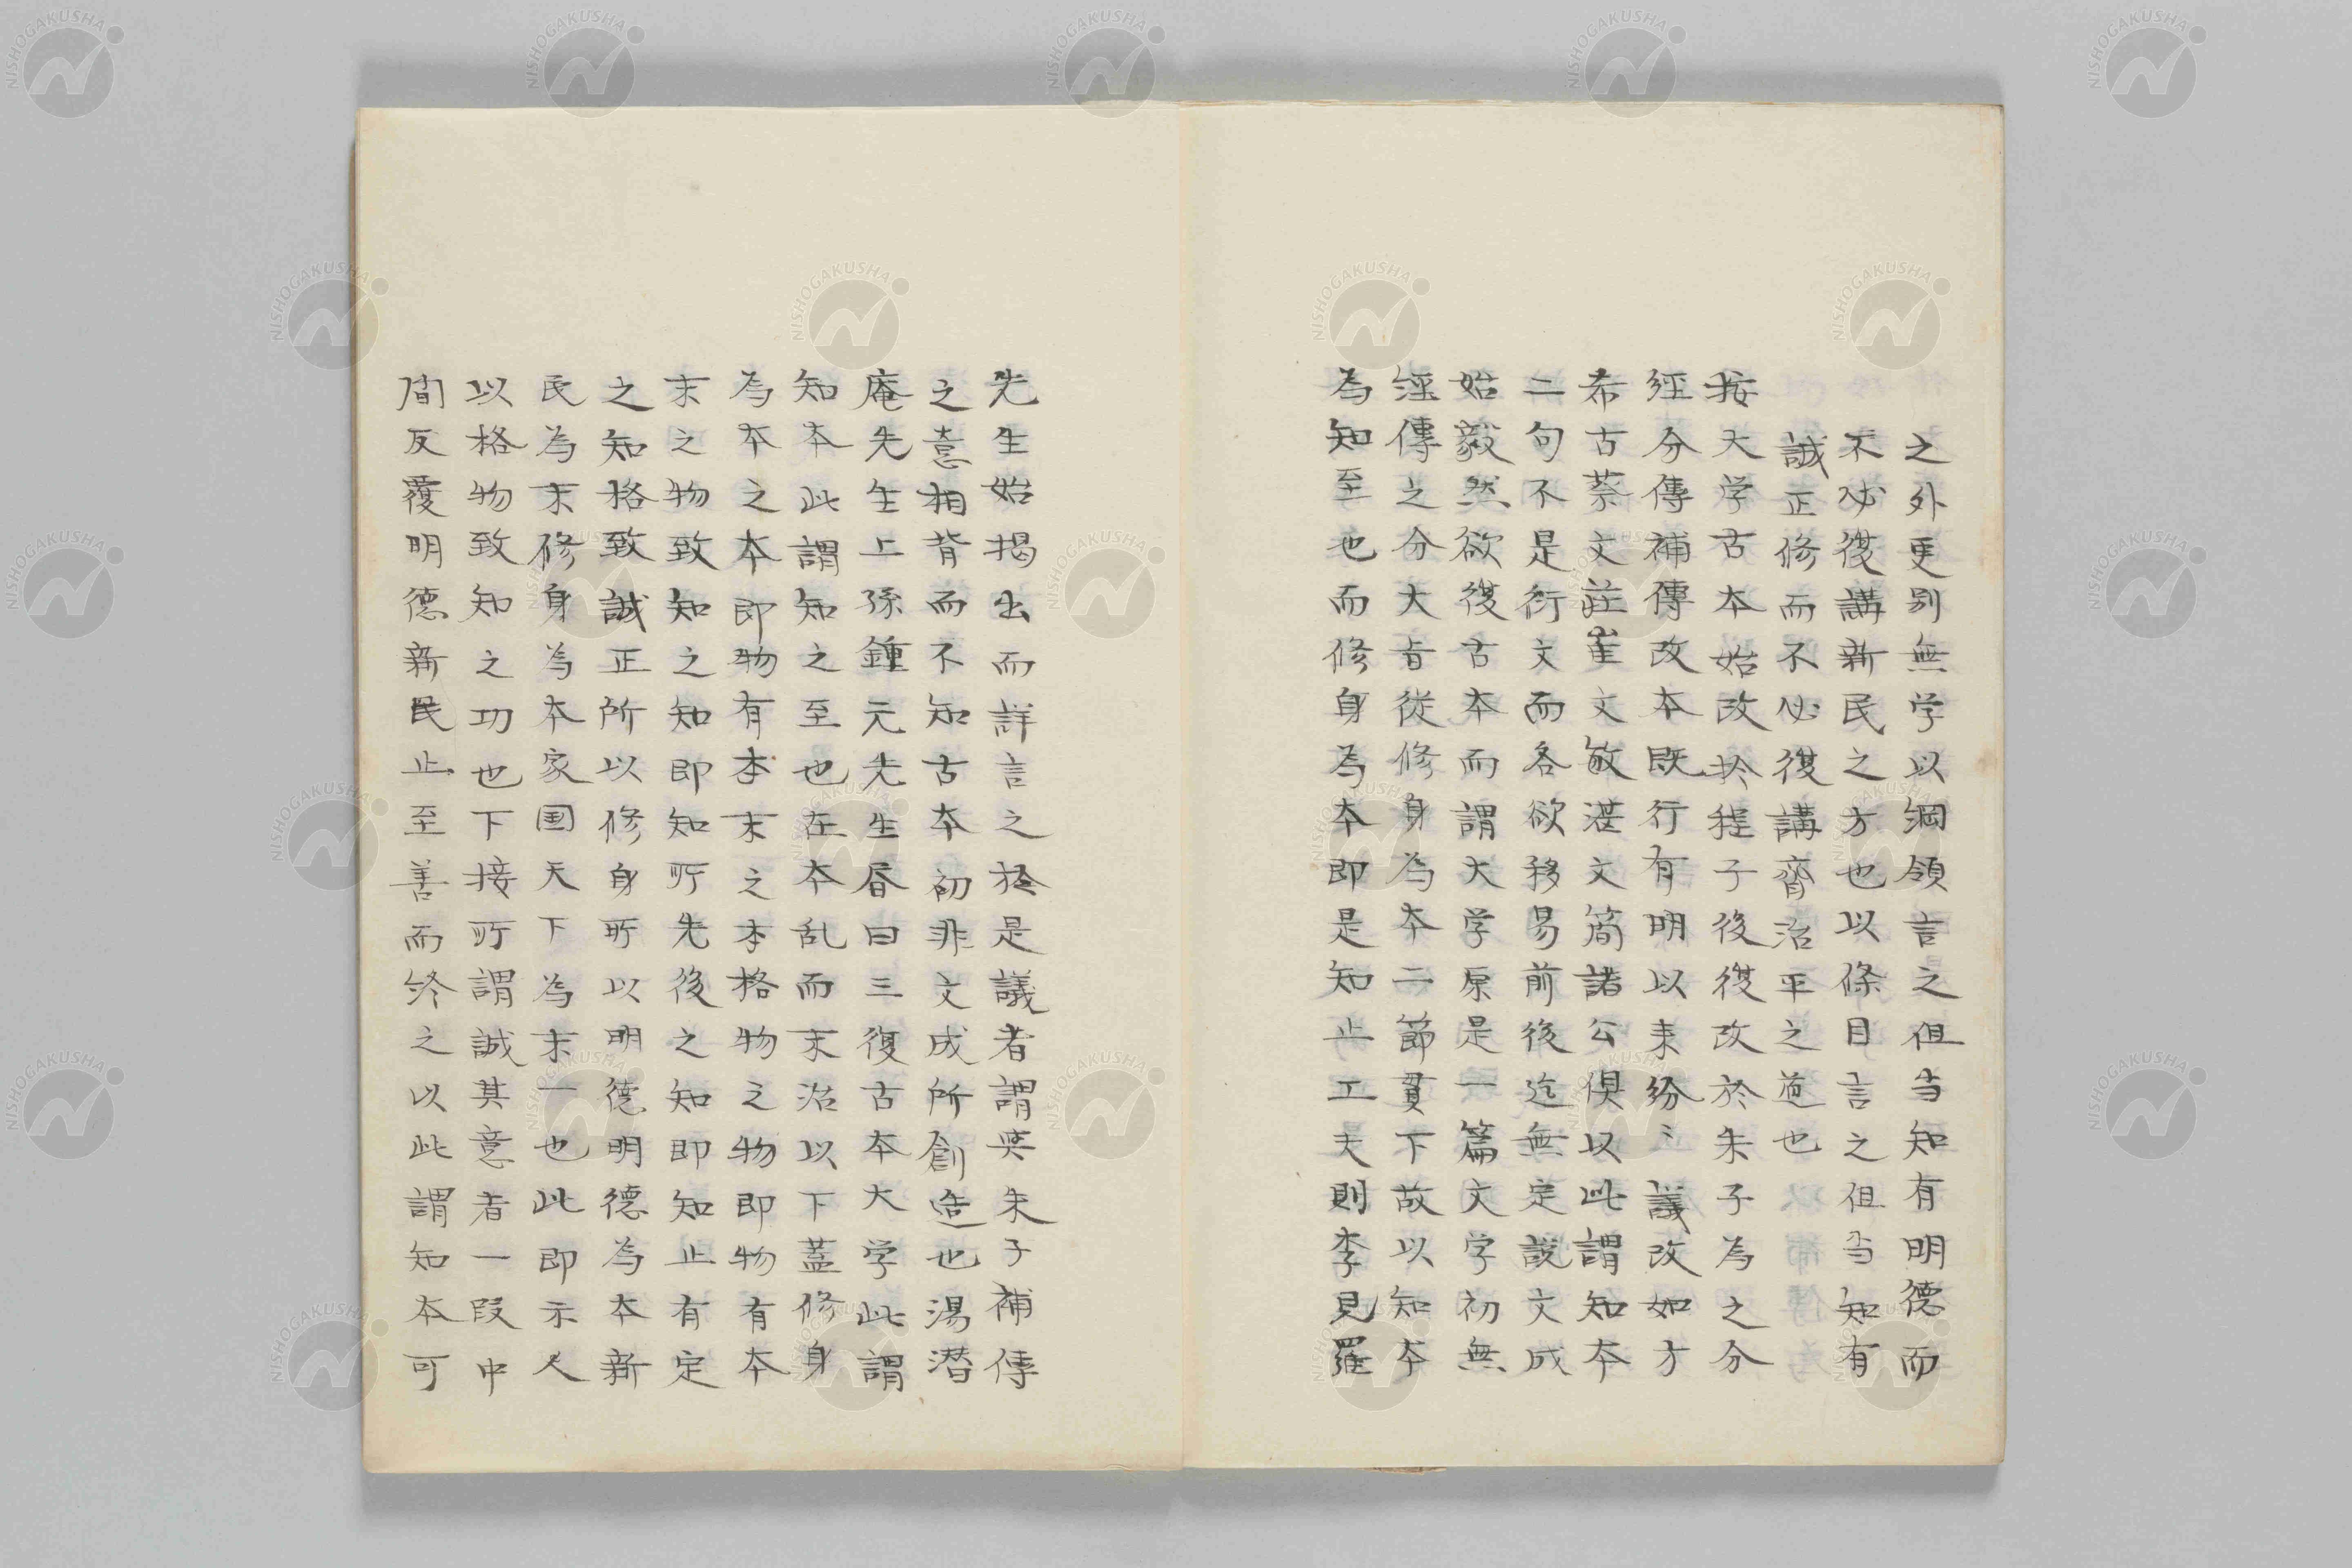 之外更別無学以綱領言之但当知有明德而
不必復講新民之方也以條目言之但当知有
誠正修而不必復講齊治平之道也
按大学古本始改於程子後復改於朱子為之分
經分傳補傳改本既行有明以来紛〻議改如方
希古蔡文註崔文敏湛文簡諸公俱以此謂知本
二句不是衍文而各欲移易前後迄無定説文成
始毅然欲復古本而謂大学原是一篇文字初無
經傳之分大旨從修身為本二節貫下故以知本
為知至也而修身為本即是知止工夫則李見羅
先生始揭出而詳言之於是議者謂與朱子補傳
之意相背而不知古本初非文成所創造也湯潜
庵先生上孫鍾元先生㫪曰三復古本大学此謂
知本此謂知之至也在本乱而末治以下蓋修身
為本之本即物有本末之本格物之物即物有本
末之物致知之知即知所先後之知即知止有定
之知格致誠正所以修身所以明德明德為本新
民為末修身為本家国天下為末一也此即示人
以格物致知之功也下接所謂誠其意者一段中
間反覆明德新民止至善而終之以此謂知本可